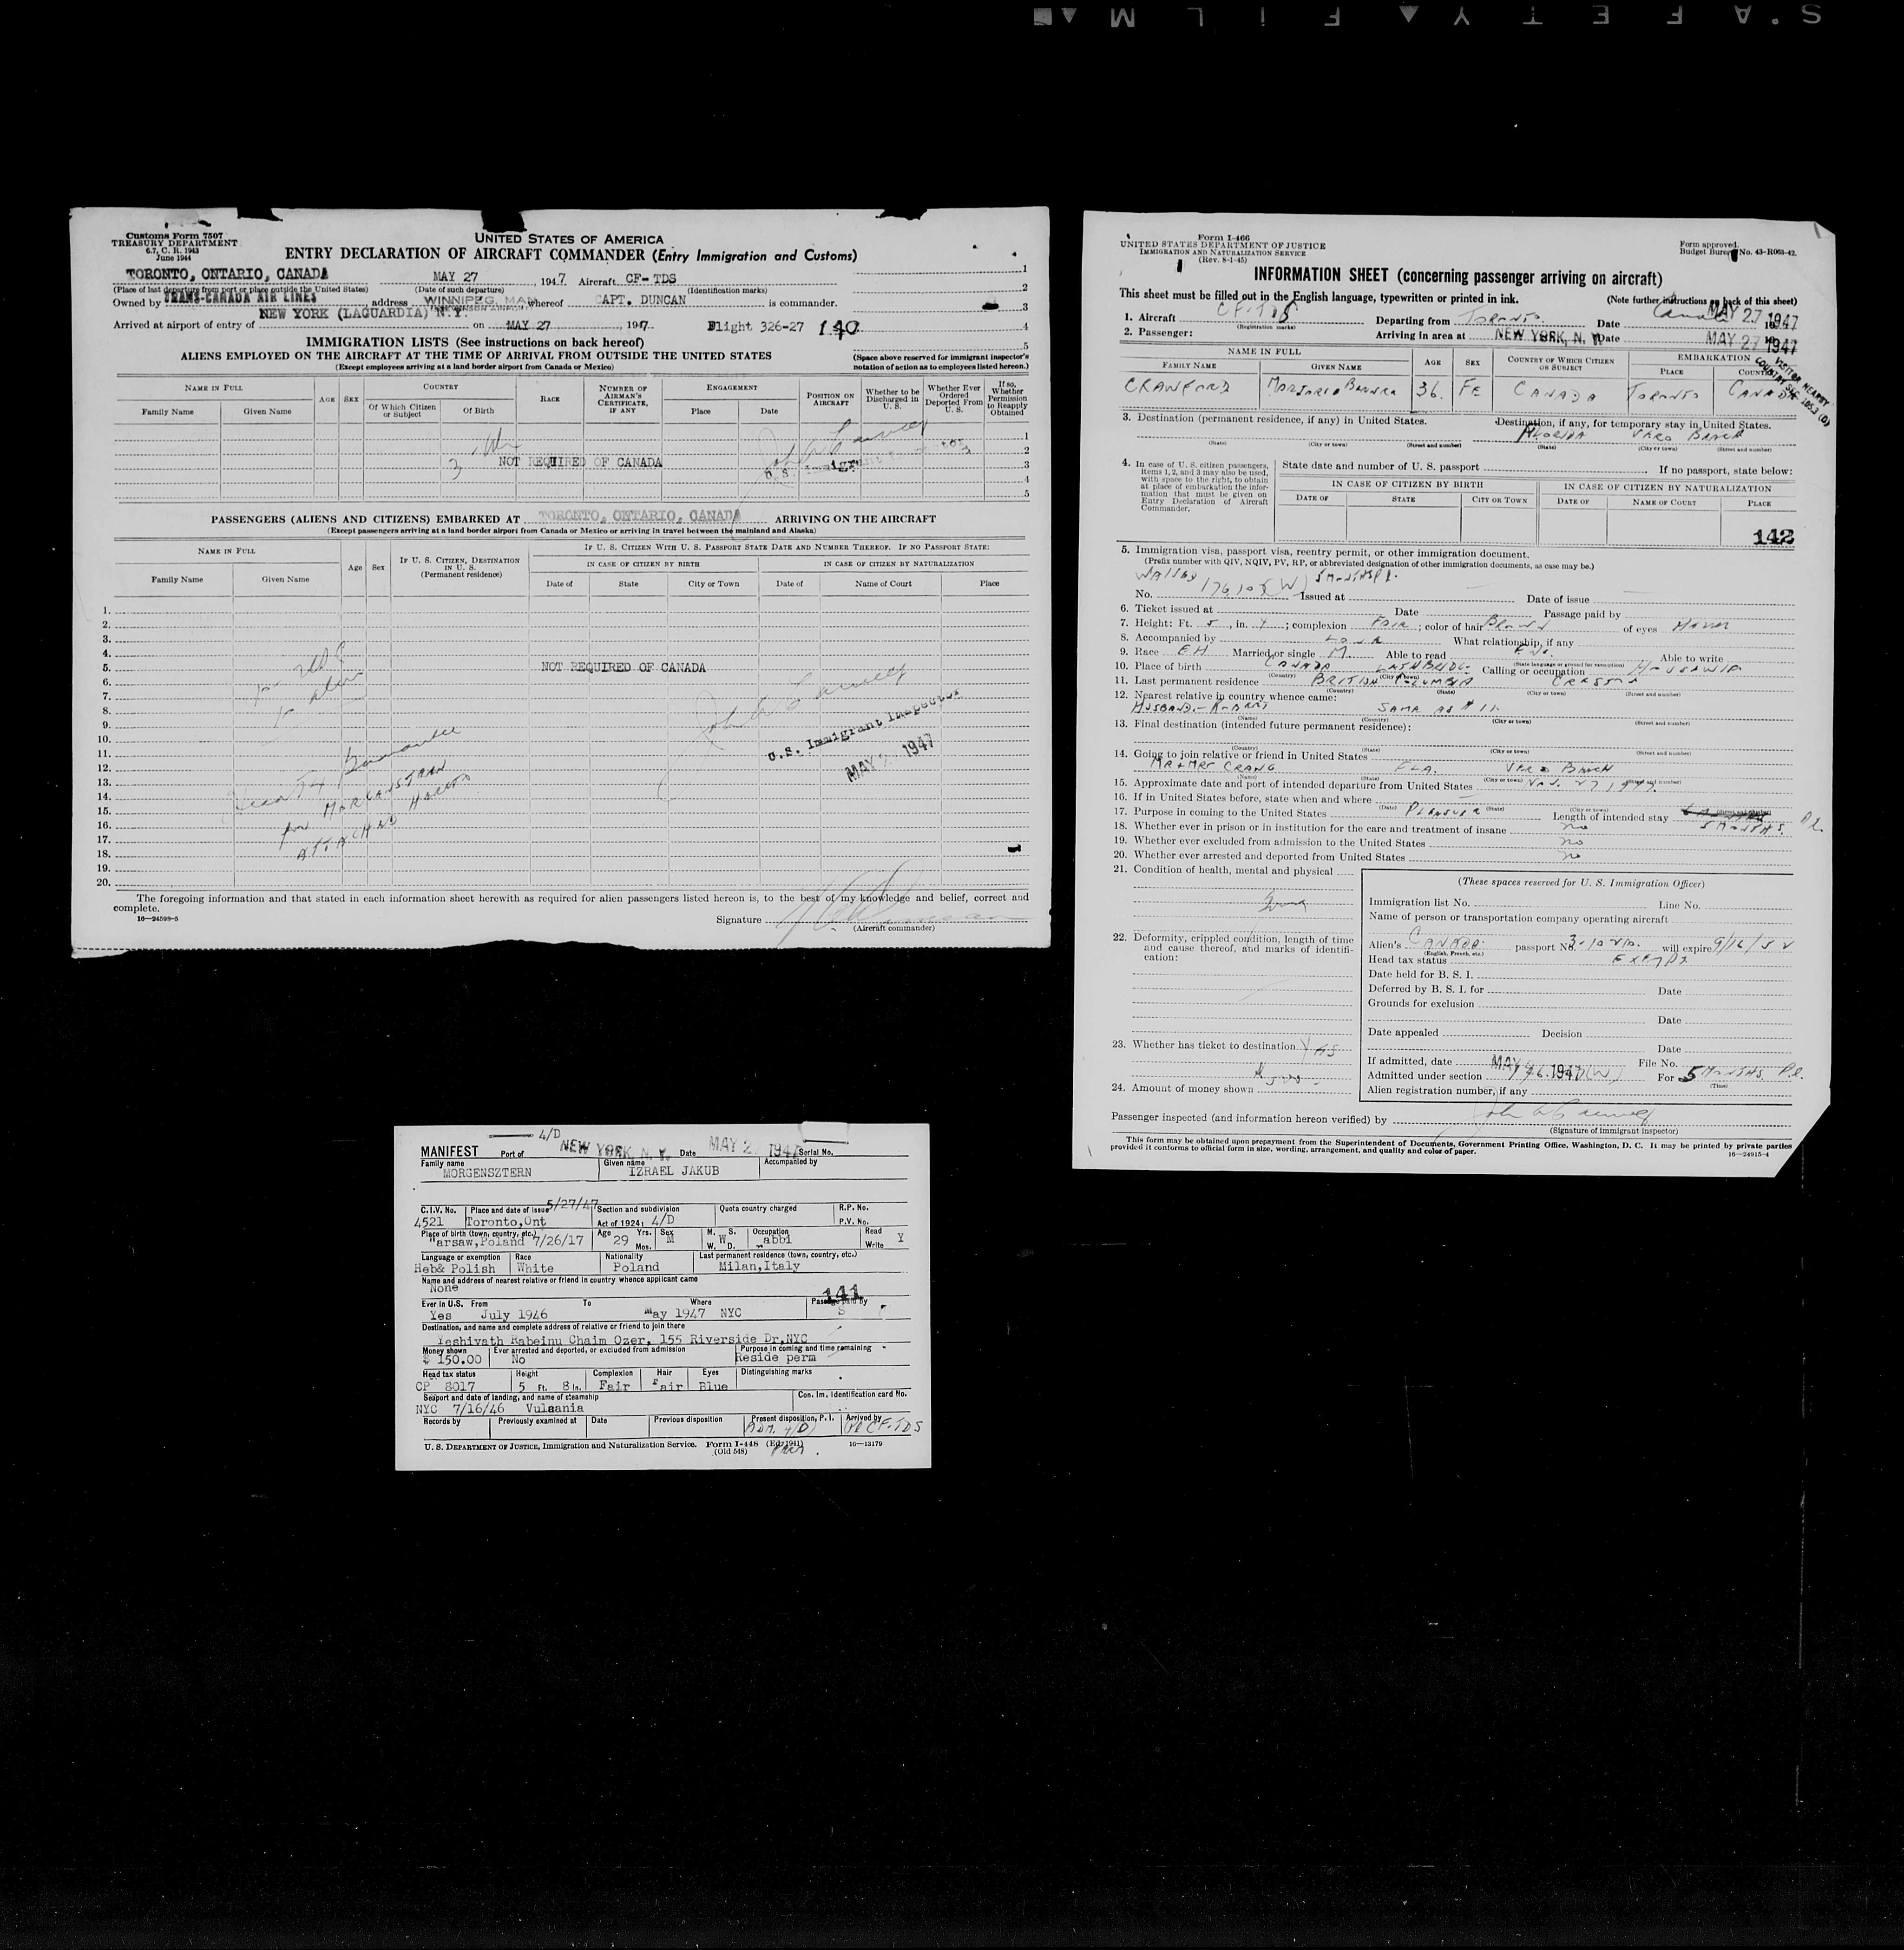 SAFETY FILM
Customs Form 7507
TREASURY DEPARTMENT
6.7, C. R. 1943
June 1944
UNITED STATES OF AMERICA
ENTRY DECLARATION OF AIRCRAFT COMMANDER (Entry Immigration and Customs)
TORONTO, ONTARIO, CANADA MAY 27, 1947 Aircraft CF-TDS
(Place of last departure from port or place outside the United States) (Date of such departure) (Identification marks)
Owned by TRANS-CANADA AIR LINES, address WINNIPEG, MAN whereof CAPT. DUNCAN is commander.
Arrived at airport of entry of NEW YORK (LAGUARDIA) N.Y. on MAY 27 1947 Flight 326-27 140
IMMIGRATION LISTS (See instructions on back hereof)
ALIENS EMPLOYED ON THE AIRCRAFT AT THE TIME OF ARRIVAL FROM OUTSIDE THE UNITED STATES
(Except employees arriving at a land border airport from Canada or Mexico)
1
2
3
4
5
(Space above reserved for immigrant inspector's notation of action as to employees listed hereon.)
NAME IN FULL
Family Name Given Name
AGE SEX
COUNTRY
Of Which Citizen or Subject Of Birth
RACE
NUMBER OF AIRMAN'S CERTIFICATE, IF ANY
ENGAGEMENT
Place Date
POSITION ON AIRCRAFT
Whether to be Discharged in U. S.
Whether Ever Ordered Deported From U. S.
If so, Whether Permission to Reapply Obtained
1
2
3 NOT REQUIRED OF CANADA
3
4
5
PASSENGERS (ALIENS AND CITIZENS) EMBARKED AT TORONTO, ONTARIO, CANADA ARRIVING ON THE AIRCRAFT
(Except passengers arriving at a land border airport from Canada or Mexico or arriving in travel between the mainland and Alaska)
NAME IN FULL
Family Name Given Name
Age Sex
IF U. S. CITIZEN, DESTINATION IN U. S. (Permanent residence)
IF U. S. CITIZEN WITH U. S. PASSPORT STATE DATE AND NUMBER THEREOF. IF NO PASSPORT STATE:
IN CASE OF CITIZEN BY BIRTH IN CASE OF CITIZEN BY NATURALIZATION
Date of State City or Town Date of Name of Court Place
1.
2.
3.
4.
5. NOT REQUIRED OF CANADA
6.
7.
8.
9.
10. U.S. Immigrant Inspector
11. MAY 2 1947
12.
13.
14. for MORGANSTERN
15. ATTACHED HERETO
16.
17.
18.
19.
20.
The foregoing information and that stated in each information sheet herewith as required for alien passengers listed hereon is, to the best of my knowledge and belief, correct and
complete.
16—24598-5
Signature
(Aircraft commander)
Form I-466
UNITED STATES DEPARTMENT OF JUSTICE
IMMIGRATION AND NATURALIZATION SERVICE
(Rev. 8-1-45)
Form approved.
Budget Bureau No. 43-R063-42.
INFORMATION SHEET (concerning passenger arriving on aircraft)
This sheet must be filled out in the English language, typewritten or printed in ink. (Note further instructions on back of this sheet)
1. Aircraft CF-TDS Departing from TORONTO Canada Date MAY 27 1947
(Registration marks)
2. Passenger: Arriving in area at NEW YORK, N. Y. Date MAY 27 1947
NAME IN FULL
FAMILY NAME GIVEN NAME
AGE SEX
COUNTRY OF WHICH CITIZEN OR SUBJECT
EMBARKATION
PLACE COUNTRY
CRAWFORD MARJORIE 36. FE CANADA TORONTO CANADA
3. Destination (permanent residence, if any) in United States. Destination, if any, for temporary stay in United States.
FLORIDA VERO BEACH
(State) (City or town) (Street and number) (State) (City or town) (Street and number)
4. In case of U. S. citizen passengers, items 1, 2, and 3 may also be used, with space to the right, to obtain at place of embarkation the information that must be given on Entry Declaration of Aircraft Commander.
State date and number of U. S. passport If no passport, state below:
IN CASE OF CITIZEN BY BIRTH IN CASE OF CITIZEN BY NATURALIZATION
DATE OF STATE CITY OR TOWN DATE OF NAME OF COURT PLACE
142
5. Immigration visa, passport visa, reentry permit, or other immigration document.
(Prefix number with QIV, NQIV, PV, RP, or abbreviated designation of other immigration documents, as case may be.)
No. Issued at Date of issue
6. Ticket issued at Date Passage paid by
7. Height: Ft. 5, in. 4; complexion FAIR; color of hair of eyes
8. Accompanied by What relationship, if any
9. Race Married or single M Able to read Able to write
(State language or ground for exemption)
10. Place of birth CANADA Calling or occupation
(Country) (City or town)
11. Last permanent residence BRITISH COLUMBIA
(Country) (State) (City or town) (Street and number)
12. Nearest relative in country whence came:
HUSBAND SAME AS # 11
(Name) (Country) (City or town) (Street and number)
13. Final destination (intended future permanent residence):
(Country) (State) (City or town) (Street and number)
14. Going to join relative or friend in United States
FLA. VERO BEACH
(Name) (State) (City or town) (Street and number)
15. Approximate date and port of intended departure from United States
16. If in United States before, state when and where
(Date) (State) (City or town) (Street and number)
17. Purpose in coming to the United States PLEASURE Length of intended stay 5 MONTHS.
18. Whether ever in prison or in institution for the care and treatment of insane no
19. Whether ever excluded from admission to the United States no
20. Whether ever arrested and deported from United States no
21. Condition of health, mental and physical
Good
22. Deformity, crippled condition, length of time and cause thereof, and marks of identification:
23. Whether has ticket to destination YES
24. Amount of money shown
(These spaces reserved for U. S. Immigration Officer)
Immigration list No. Line No.
Name of person or transportation company operating aircraft
Alien's passport No. will expire
(English, French, etc.)
Head tax status EXEMPT
Date held for B. S. I.
Deferred by B. S. I. for Date
Grounds for exclusion
Date
Date appealed Decision
Date
If admitted, date MAY 1947 File No.
Admitted under section For 5 MONTHS
(Time)
Alien registration number, if any
Passenger inspected (and information hereon verified) by
(Signature of immigrant inspector)
This form may be obtained upon prepayment from the Superintendent of Documents, Government Printing Office, Washington, D. C. It may be printed by private parties
provided it conforms to official form in size, wording, arrangement, and quality and color of paper.
16—24915-4
4/D
MANIFEST Port of NEW YORK, N. Y. Date MAY 2 1947 Serial No.
Family name Given name Accompanied by
MORGENSZTERN IZRAEL JAKUB
C.I.V. No. Place and date of issue 5/27/47 Section and subdivision Quota country charged R.P. No.
4521 Toronto,Ont Act of 1924: 4/D P.V. No.
Place of birth (town, country, etc.) Age Yrs. Mos. Sex M. S. W. D. Occupation Read Write
Warsaw,Poland 7/26/17 29 M W abbi Y
Language or exemption Race Nationality Last permanent residence (town, country, etc.)
Heb& Polish White Poland Milan,Italy
Name and address of nearest relative or friend in country whence applicant came
None
141
Ever in U.S. From To Where Passage paid by
Yes July 1946 May 1947 NYC S
Destination, and name and complete address of relative or friend to join there
Yeshivath Rabeinu Chaim Ozer, 155 Riverside Dr,NYC
Money shown Ever arrested and deported, or excluded from admission Purpose in coming and time remaining
$ 150.00 No Reside perm
Head tax status Height Complexion Hair Eyes Distinguishing marks
CP 8017 5 Ft. 8 In. Fair Fair Blue
Seaport and date of landing, and name of steamship Con. Im. Identification card No.
NYC 7/16/46 Vulcania
Records by Previously examined at Date Previous disposition Present disposition, P. I. Arrived by
ADM. 4(D) CF-TDS
U. S. DEPARTMENT OF JUSTICE, Immigration and Naturalization Service. Form I-448 (Ed. 1941) 16—13179
(Old 548)